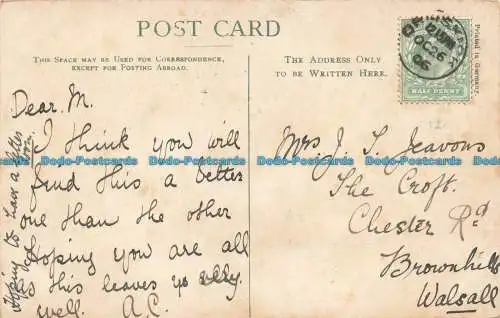 POST CARD
THIS SPACE MAY BE USED FOR CORRESPONDENCE,
EXCEPT FOR POSTING ABROAD.
THE ADDRESS ONLY
TO BE WRITTEN HERE.
Printed in Germany.
OC 26
06
HALF PENNY
Dear M.
I think you will
find this a better
one than the other
Hoping you are all
as this leaves us
well. A.C.
Hoping to have a letter
soon.
Mrs J. S. Jeavons
The Croft.
Chester Rd
Brownhills
Walsall
Dodo-Postcards Dodo-Postcards Dodo-Postcards Dodo-Postcards
Dodo-Postcards Dodo-Postcards Dodo-Postcards Dodo-Postcards
Dodo-Postcards Dodo-Postcards Dodo-Postcards Dodo-Postcards